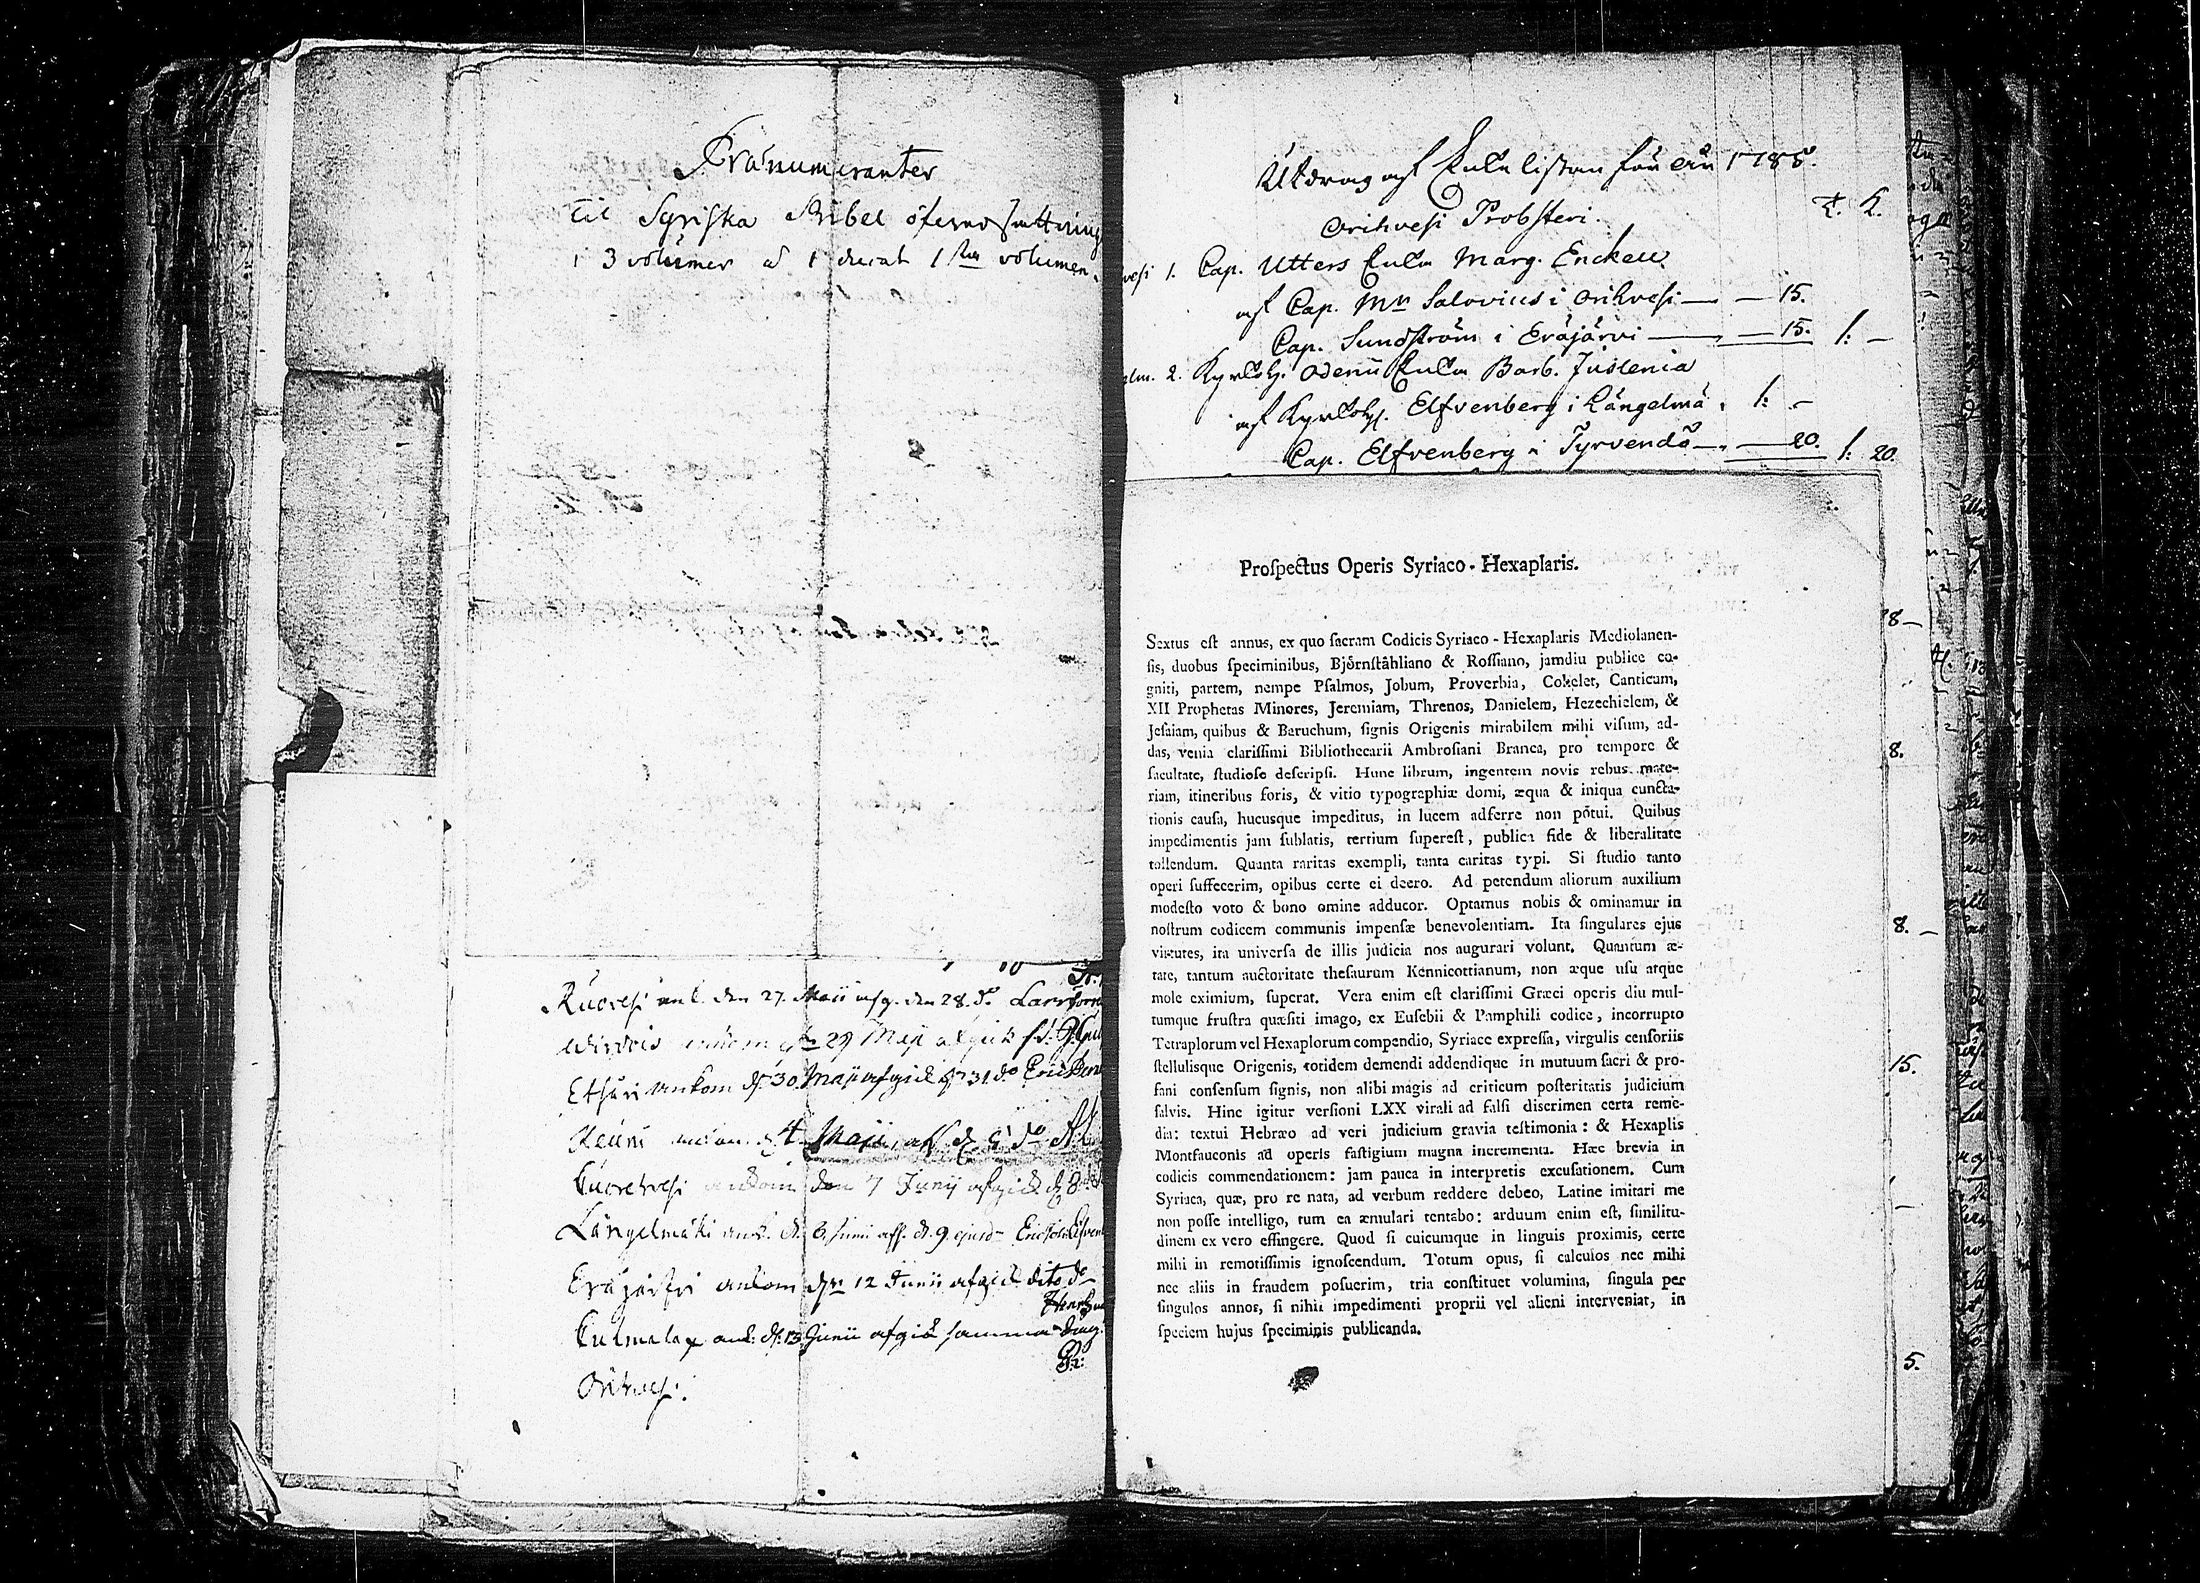 Pränumeranter
til Syriska Bibel öfversättning
i 3 volumer a 1 ducat 1sta volumen.
Ruovesi ank. den 27. Maii afg. den 28. do
ankom dn 29 Maji afgick
Etseri ankom d. 30. Maji afgick d. 31. do Eric
Keuru Maji, afg. d. 5 do
Kuorehvesi ankom den 7 Junij afgick d. 8
Längelmäki ank. d. 8. Junii aff. d. 9. ejusd.
Eräjärfvi ankom dn 12 Junii afgick dito
Kulmalax ank. d. 13 Junii afgick samma dag.
Orihvesi.
Utdrag af Enke listan för år 1785.
Orihvesi Probsteri.
vesi 1. Cap. Utters Enka Marg. Enckell
af Cap. Mn Salovius i Orihvesi — — 15.
Cap. Sundström i Eräjärvi — — 15. 1: —
elm. 2. Kyrkoh. Odenii Enka Barb. Juslenia
af Kyrkoh. Elfvenberg i Längelmä. 1: —
Cap. Elfvenberg i Tyrvendö — — 20. 1: 20.
Proſpectus Operis Syriaco-Hexaplaris.
Sextus eſt annus, ex quo ſacram Codicis Syriaco-Hexaplaris Mediolanen-
ſis, duobus ſpeciminibus, Björnſtåhliano & Roſſiano, jamdiu publice co-
gniti, partem, nempe Pſalmos, Jobum, Proverbia, Cohelet, Canticum,
XII Prophetas Minores, Jeremiam, Threnos, Danielem, Hezechielem, &
Jeſaiam, quibus & Baruchum, ſignis Origenis mirabilem mihi viſum, ad-
das, venia clariſſimi Bibliothecarii Ambroſiani Branca, pro tempore &
facultate, ſtudioſe deſcripſi. Hunc librum, ingentem novis rebus mate-
riam, itineribus foris, & vitio typographiæ domi, æqua & iniqua cuncta-
tionis cauſa, hucusque impeditus, in lucem adferre non pôtui. Quibus
impedimentis jam ſublatis, tertium ſupereſt, publica fide & liberalitate
tollendum. Quanta raritas exempli, tanta caritas typi. Si ſtudio tanto
operi ſuffecerim, opibus certe ei deero. Ad petendum aliorum auxilium
modeſto voto & bono omine adducor. Optamus nobis & ominamur in
noſtrum codicem communis impenſæ benevolentiam. Ita ſingulares ejus
virtutes, ita univerſa de illis judicia nos augurari volunt. Quantum æ-
tate, tantum auctoritate theſaurum Kennicottianum, non æque uſu atque
mole eximium, ſuperat. Vera enim eſt clariſſimi Græci operis diu mul-
tumque fruſtra quæſiti imago, ex Euſebii & Pamphili codice, incorrupto
Tetraplorum vel Hexaplorum compendio, Syriace expreſſa, virgulis cenſoriis
ſtellulisque Origenis, totidem demendi addendique in mutuum ſacri & pro-
fani conſenſum ſignis, non alibi magis ad criticum poſteritatis judicium
ſalvis. Hinc igitur verſioni LXX virali ad falſi discrimen certa reme-
dia: textui Hebræo ad veri judicium gravia teſtimonia: & Hexaplis
Montfauconis ad operis faſtigium magna incrementa. Hæc brevia in
codicis commendationem: jam pauca in interpretis excuſationem. Cum
Syriaca, quæ, pro re nata, ad verbum reddere debeo, Latine imitari me
non poſſe intelligo, tum ea æmulari tentabo: arduum enim eſt, ſimilitu-
dinem ex vero effingere. Quod ſi cuicumque in linguis proximis, certe
mihi in remotiſſimis ignoſcendum. Totum opus, ſi calculos nec mihi
nec aliis in fraudem poſuerim, tria conſtituet volumina, ſingula per
ſingulos annos, ſi nihil impedimenti proprii vel alieni interveniat, in
ſpeciem hujus ſpeciminis publicanda.
8 —
8.
8. —
15.
5.